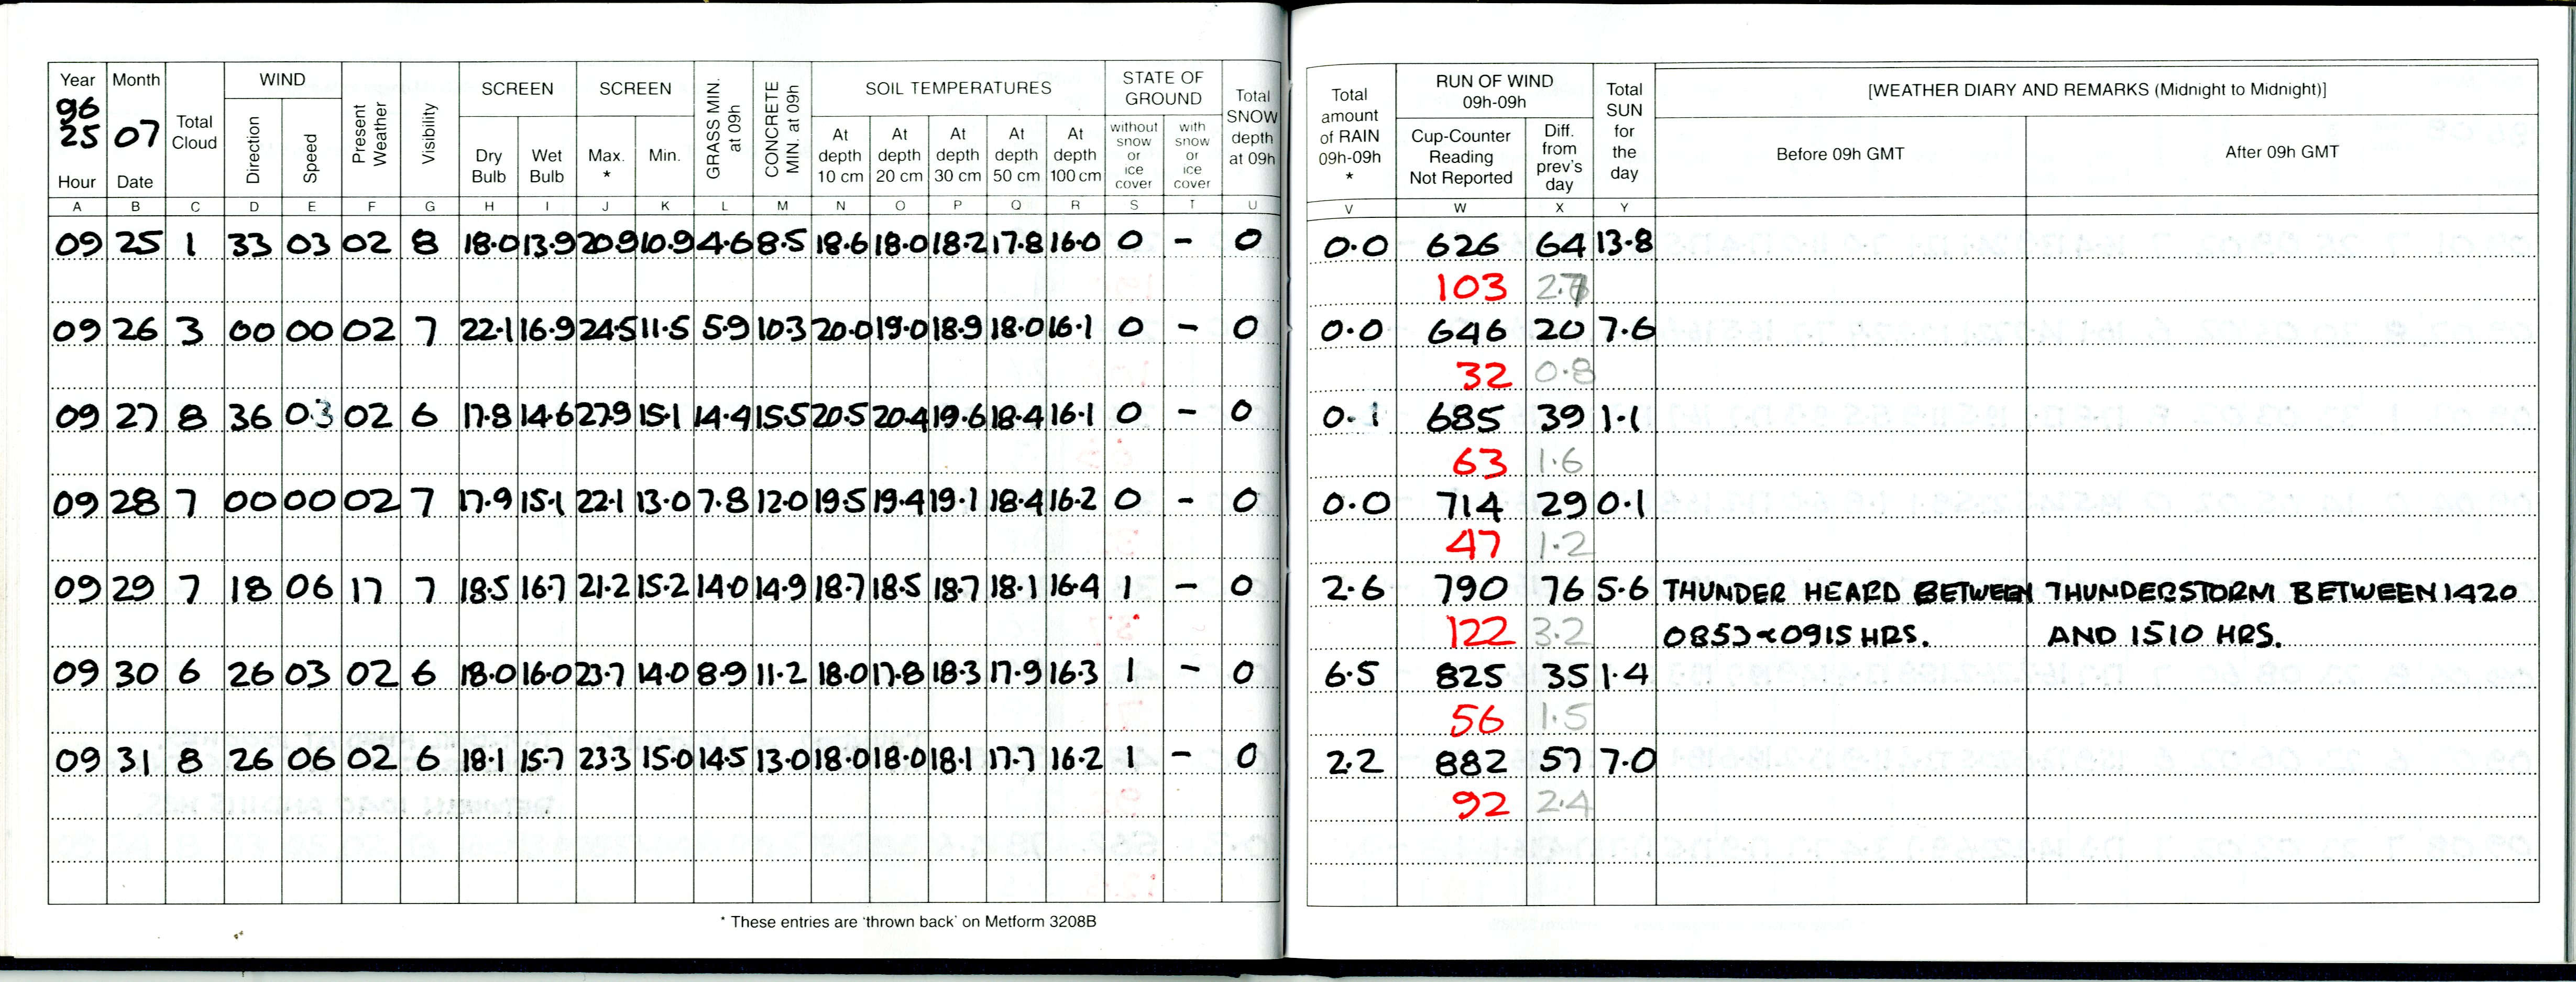 Year Month Total Cloud WIND Present Weather Visibility SCREEN SCREEN GRASS MIN. at 09h CONCRETE MIN. at 09h SOIL TEMPERATURES STATE OF GROUND Total SNOW depth at 09h Total amount of RAIN 09h-09h * RUN OF WIND 09h-09h Total SUN for the day [WEATHER DIARY AND REMARKS (Midnight to Midnight)]
96
25 07
Hour Date Direction Speed Dry Bulb Wet Bulb Max. * Min. At depth 10 cm At depth 20 cm At depth 30 cm At depth 50 cm At depth 100 cm without snow or ice cover with snow or ice cover Cup-Counter Reading Not Reported Diff. from prev's day Before 09h GMT After 09h GMT
A B C D E F G H I J K L M N O P Q R S T U V W X Y
09 25 1 33 03 02 8 18.0 13.9 20.9 10.9 4.6 8.5 18.6 18.0 18.2 17.8 16.0 0 - 0 0.0 626 64 13.8
103 2.7
09 26 3 00 00 02 7 22.1 16.9 24.5 11.5 5.9 10.3 20.0 19.0 18.9 18.0 16.1 0 - 0 0.0 646 20 7.6
32 0.8
09 27 8 36 03 02 6 17.8 14.6 27.9 15.1 14.4 15.5 20.5 20.4 19.6 18.4 16.1 0 - 0 0.1 685 39 1.1
63 1.6
09 28 7 00 00 02 7 17.9 15.1 22.1 13.0 7.8 12.0 19.5 19.4 19.1 18.4 16.2 0 - 0 0.0 714 29 0.1
47 1.2
09 29 7 18 06 17 7 18.5 16.7 21.2 15.2 14.0 14.9 18.7 18.5 18.7 18.1 16.4 1 - 0 2.6 790 76 5.6 THUNDER HEARD BETWEEN THUNDERSTORM BETWEEN 1420
122 3.2 & 0915 HRS. AND 1510 HRS.
09 30 6 26 03 02 6 18.0 16.0 23.7 14.0 8.9 11.2 18.0 17.8 18.3 17.9 16.3 1 - 0 6.5 825 35 1.4
56 1.5
09 31 8 26 06 02 6 18.1 15.7 23.3 15.0 14.5 13.0 18.0 18.0 18.1 17.7 16.2 1 - 0 2.2 882 57 7.0
92 2.4
* These entries are 'thrown back' on Metform 3208B